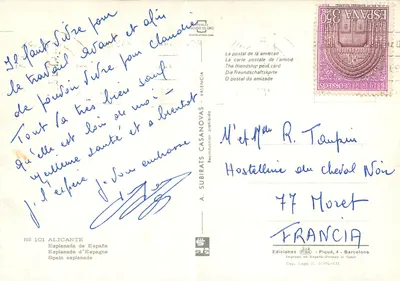 Il faut vivre pour
le travail avant et afin
de pouvoir vivre pour Claudine
Tout va très bien sauf
qu'elle est loin de moi -
Meilleure santé et à bientôt
j'espère je vous embrasse
Nº 102 ALICANTE
Esplanada de España
Esplanade d'Espagne
Spain esplanade
A. SUBIRATS CASANOVAS
VALENCIA
La postal de la amistad
La carte postale de l'amitié
The friendship post card
Die Freundschaftskarte
O postal da amizade
ESPAÑA
CORREOS
M et Mme R. Taupin
Hostellerie du cheval Noir
77 Moret
FRANCIA
Ediciones
Piquer, 4 - Barcelona